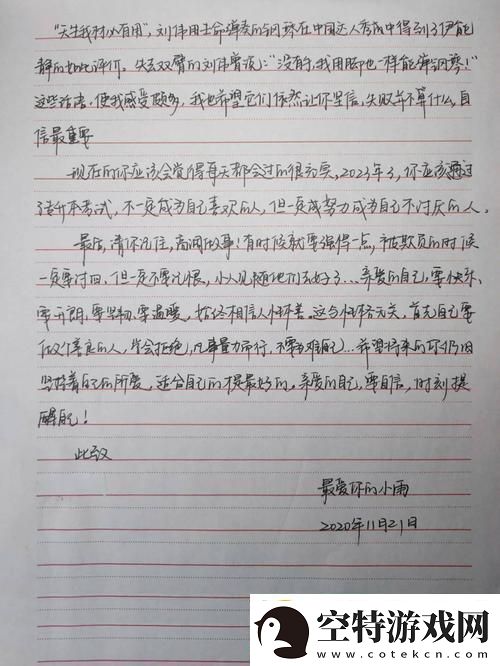 “天生我材必有用”,刘伟用生命弹奏的钢琴在中国达人秀中得到了伊能
静的如此评价。失去双臂的刘伟曾说:“没有手,我用脚也一样能弹钢琴!”
这些话语,使我感受颇多,我也希望它们依然让你坚信,失败并不算什么,自
信最重要
现在的你应该会觉得每天都会过的很充实,2023年了,你应该通过
专升本考试,不一定成为自己喜欢的人,但一定成努力成为自己不讨厌的人。
最后,请你记住,高调做事!有时候就要强得一点,被欺负的时候
一定要讨回,但一定不要记恨,小人见随他们去好了…亲爱的自己,要快乐、
要开朗,要坚韧,要温暖,始终相信人性本善。这与性格无关,首先自己要
做个善良的人,学会拒绝,凡事量力而行,不要为难自己…希望将来的你仍旧
坚持着自己的所爱,适合自己的才是最好的。亲爱的自己,要自信,时刻提
醒自己!
此致
最爱你的小雨
2020年11月21日
空特游戏网
www.cotekcn.com